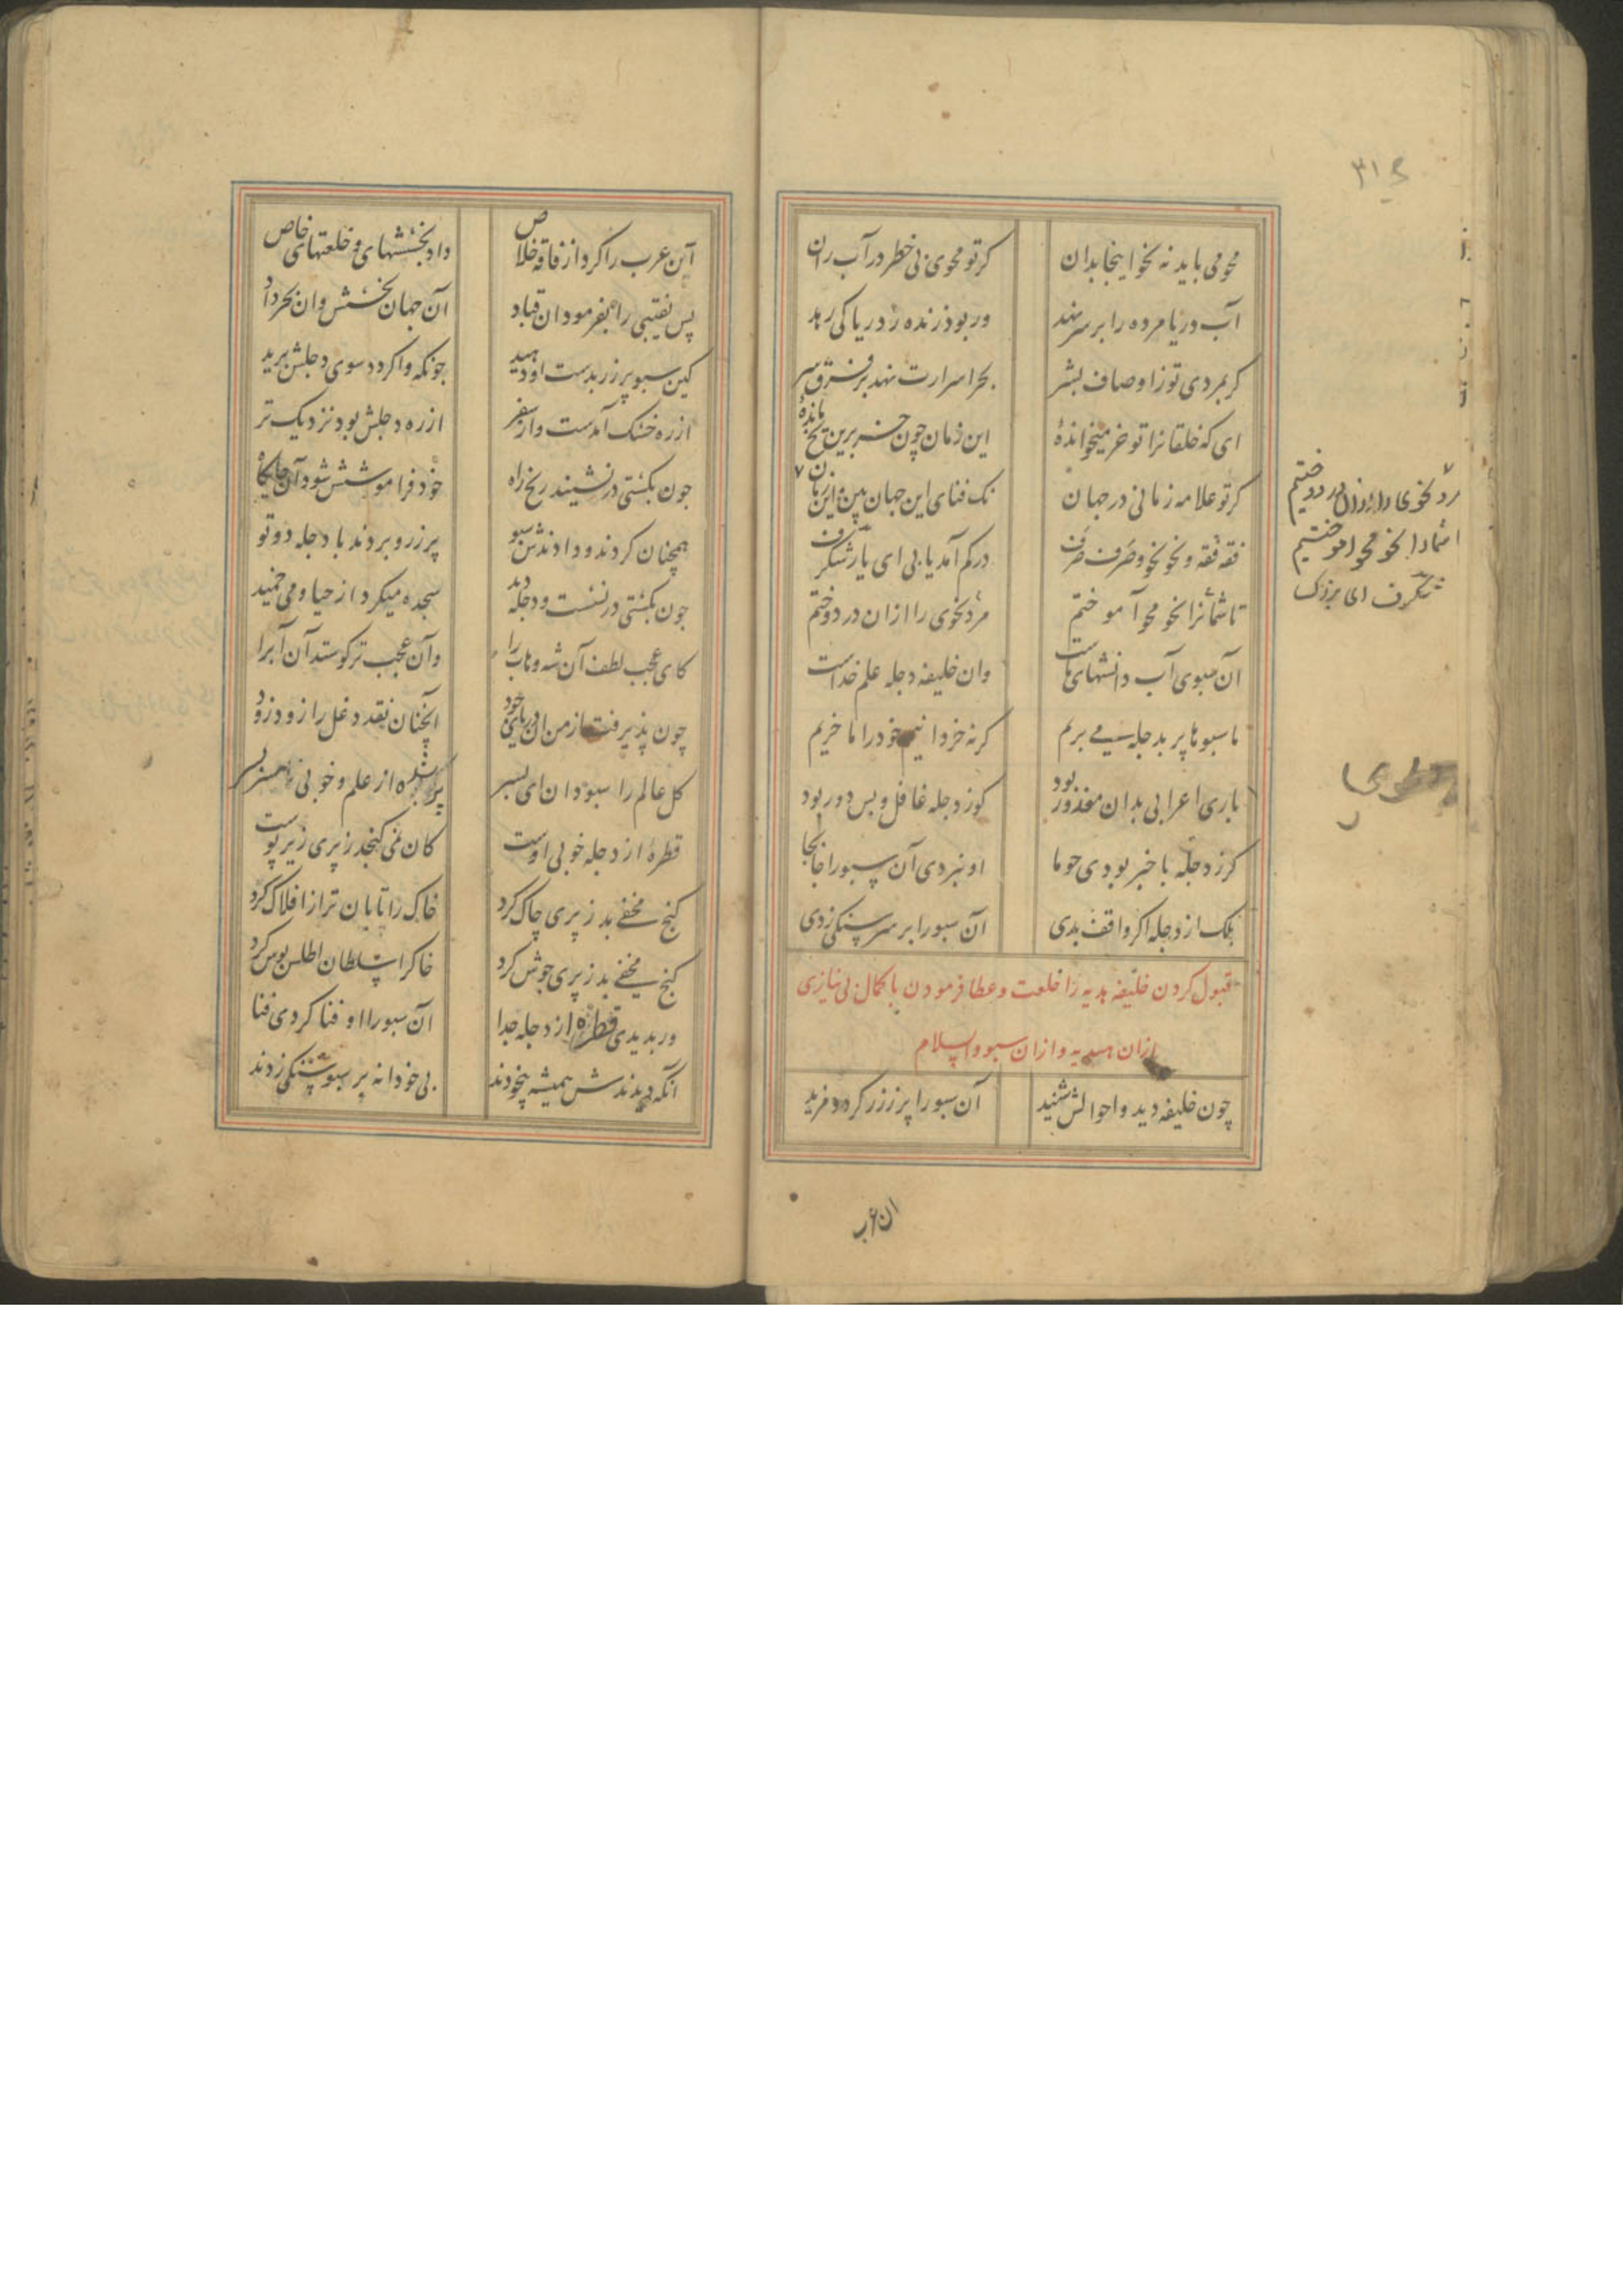 محو می باید نه نحو اینجا بدان کرتو محوی بی خطر در آب ران
آب دریا مرده را بر سر نهد ور بود زنده ز دریا کی رهد
کر بمردی تو ز اوصاف بشر بحر اسرارت نهد بر فرق سر
ای که خلقانرا تو خر میخواندۀ این زمان چون خر برین یخ ماندۀ
کر تو علامه زمانی در جهان نک فنای این جهان بین این زمان
فقه فقه و نحو نحو و صرف صرف در کم آمد یابی ای یار شکرف
تا شمانرا نحو محو آموختیم مرد نحوی را ازان در دوختیم
آن سبوی آب دانشهای ماست وان خلیفه دجله علم خداست
ما سبوها پر بدجله می بریم کر نه خر دانیم خود را ما خریم
باری اعرابی بدان معذور بود کو ز دجله غافل و بس دور بود
کر ز دجله با خبر بودی چو ما او نبردی آن سبو را جابجا
بلک از دجله اکر واقف بدی آن سبو را بر سر سنکی زدی
قبول کردن خلیفه هدیه را خلعت و عطا فرمودن با کمال بی نیازی
ازان هدیه و ازان سبو والسلام
چون خلیفه دید و احوالش شنید آن سبو را پر ز زر کرد و مزید
ان عرب
مرد نحوی را ازان در دوختیم
تا شمارا نحو محو اموختیم
شکرف ای بزرک
آن عرب را کرد از فاقه خلاص داد بخششهای و خلعتهای خاص
پس نقیبی را بفرمود ان قباد آن جهان بخشش وان بحر داد
کین سبو پر زر بدست او دهید چونکه واکردد سوی دجلش برید
از ره خشک آمدست و از سفر از ره دجلش بود نزدیک تر
چون بکشتی در نشیند رنج راه خود فراموشش شود آن جایکاه
همچنان کردند و دادندش سبو پر زر و بردند با دجله دوتو
چون بکشتی در نشست و دجله دید سجده میکرد از حیا و می خمید
کای عجب لطف آن شه وهاب را وآن عجب تر کو ستد آن آب را
چون پذیرفت از من ان دریای جود آنچنان نقد دغل را زود زود
کل عالم را سبو دان ای پسر پر شده از علم و خوبی تا بسر
قطرۀ از دجله خوبی اوست کان نمی کنجد ز پری زیر پوست
کنج مخفی بد ز پری چاک کرد خاک را تابان تر از افلاک کرد
کنج مخفی بد ز پری جوش کرد خاکرا سلطان اطلس پوش کرد
ور بدیدی قطرۀ از دجله جدا آن سبو را او فنا کردی فنا
آنکه دیدندش همیشه بیخودند بی خودانه بر سبو سنکی زدند